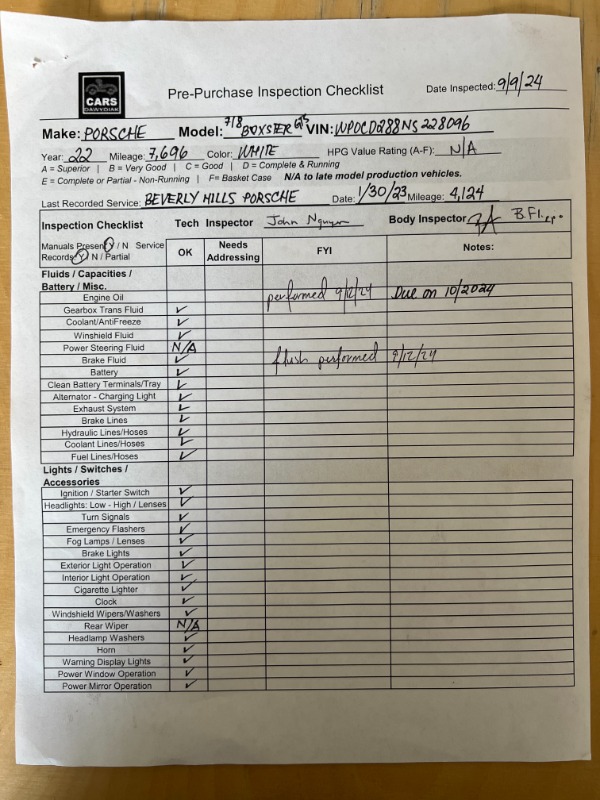 CARS
DAWYDIAK
Pre-Purchase Inspection Checklist
Date Inspected: 9/9/24
Make: PORSCHE Model: 718 BOXSTER GTS VIN: WP0CD288NS228096
Year: 22 Mileage: 7,696 Color: WHITE HPG Value Rating (A-F): N/A
A = Superior | B = Very Good | C = Good | D = Complete & Running
E = Complete or Partial - Non-Running | F= Basket Case N/A to late model production vehicles.
Last Recorded Service: BEVERLY HILLS PORSCHE Date: 1/30/23 Mileage: 4,124
Inspection Checklist Tech Inspector John Nguyen Body Inspector
Manuals Present Y / N Service
Records Y / N / Partial
OK Needs Addressing FYI Notes:
Fluids / Capacities /
Battery / Misc.
Engine Oil performed 9/12/24 Due on 10/2024
Gearbox Trans Fluid ✓
Coolant/AntiFreeze ✓
Winshield Fluid ✓
Power Steering Fluid N/A
Brake Fluid ✓ flush performed 9/12/24
Battery ✓
Clean Battery Terminals/Tray ✓
Alternator - Charging Light ✓
Exhaust System ✓
Brake Lines ✓
Hydraulic Lines/Hoses ✓
Coolant Lines/Hoses ✓
Fuel Lines/Hoses ✓
Lights / Switches /
Accessories
Ignition / Starter Switch ✓
Headlights: Low - High / Lenses ✓
Turn Signals ✓
Emergency Flashers ✓
Fog Lamps / Lenses ✓
Brake Lights ✓
Exterior Light Operation ✓
Interior Light Operation ✓
Cigarette Lighter ✓
Clock ✓
Windshield Wipers/Washers ✓
Rear Wiper N/A
Headlamp Washers ✓
Horn ✓
Warning Display Lights ✓
Power Window Operation ✓
Power Mirror Operation ✓